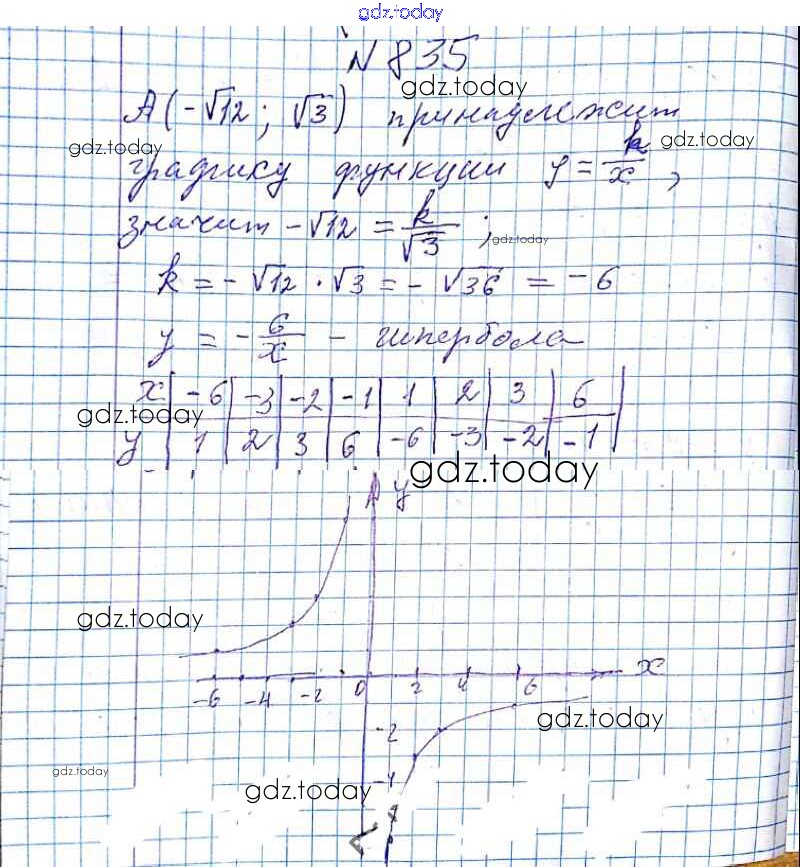 gdz.today
N 835
gdz.today
A(-√12; √3) принадлежит
gdz.today gdz.today
графику функции y = k/x,
значит -√12 = k/√3;
gdz.today
k = -√12 · √3 = -√36 = -6
y = -6/x - гипербола
x | -6 | -3 | -2 | -1 | 1 | 2 | 3 | 6 |
gdz.today
y | 1 | 2 | 3 | 6 | -6 | -3 | -2 | -1 |
gdz.today
y
gdz.today
x
-6 -4 -2 0 2 4 6
gdz.today
-2
gdz.today
-4
gdz.today